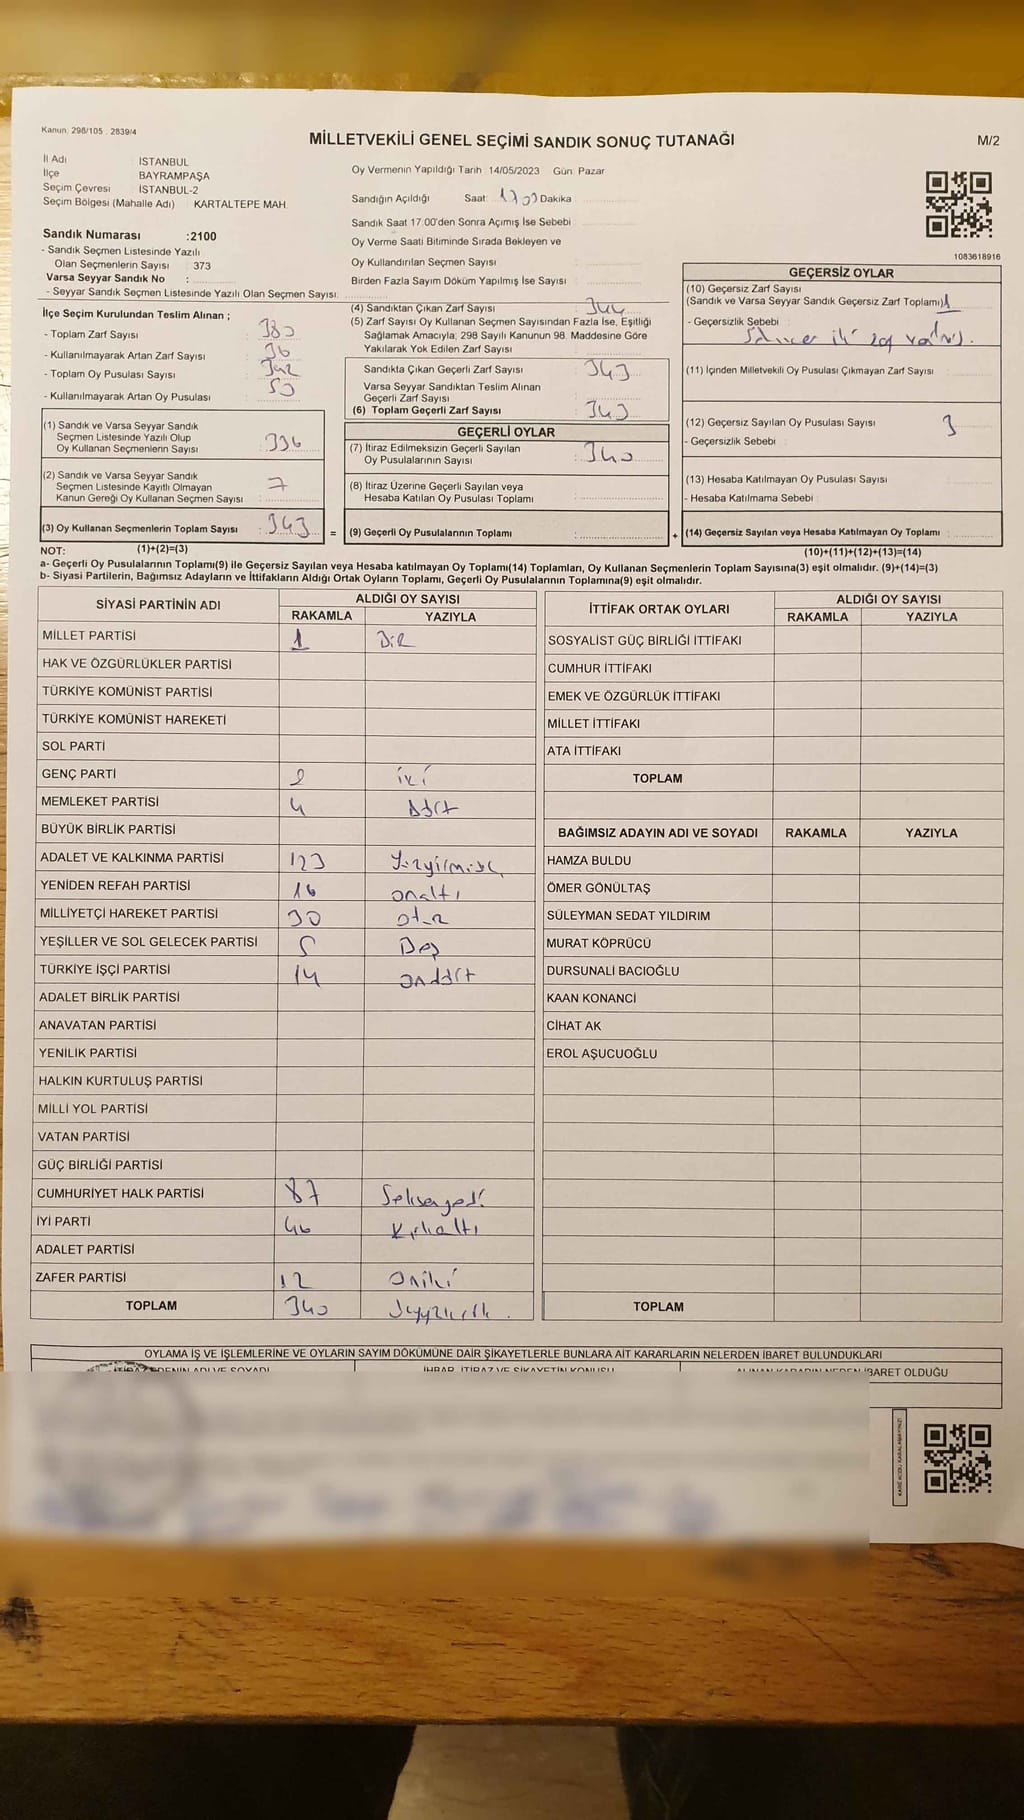 Kanun: 298/105 . 2839/4
MİLLETVEKİLİ GENEL SEÇİMİ SANDIK SONUÇ TUTANAĞI
M/2
İl Adı : İSTANBUL
İlçe : BAYRAMPAŞA
Seçim Çevresi : İSTANBUL-2
Seçim Bölgesi (Mahalle Adı) : KARTALTEPE MAH.
Sandık Numarası :2100
- Sandık Seçmen Listesinde Yazılı
Olan Seçmenlerin Sayısı : 373
Varsa Seyyar Sandık No :
- Seyyar Sandık Seçmen Listesinde Yazılı Olan Seçmen Sayısı:
Oy Vermenin Yapıldığı Tarih : 14/05/2023 Gün: Pazar
Sandığın Açıldığı Saat: Dakika
Sandık Saat 17.00'den Sonra Açımış İse Sebebi
Oy Verme Saati Bitiminde Sırada Bekleyen ve
Oy Kullandırılan Seçmen Sayısı
Birden Fazla Sayım Döküm Yapılmış İse Sayısı
1083618916
İlçe Seçim Kurulundan Teslim Alınan ;
- Toplam Zarf Sayısı : 380
- Kullanılmayarak Artan Zarf Sayısı : 36
- Toplam Oy Pusulası Sayısı : 392
- Kullanılmayarak Artan Oy Pusulası : 50
(1) Sandık ve Varsa Seyyar Sandık
Seçmen Listesinde Yazılı Olup
Oy Kullanan Seçmenlerin Sayısı : 336
(2) Sandık ve Varsa Seyyar Sandık
Seçmen Listesinde Kayıtlı Olmayan
Kanun Gereği Oy Kullanan Seçmen Sayısı : 7
(3) Oy Kullanan Seçmenlerin Toplam Sayısı : 343 =
(4) Sandıktan Çıkan Zarf Sayısı : 344
(5) Zarf Sayısı Oy Kullanan Seçmen Sayısından Fazla İse, Eşitliği
Sağlamak Amacıyla; 298 Sayılı Kanunun 98. Maddesine Göre
Yakılarak Yok Edilen Zarf Sayısı :
Sandıkta Çıkan Geçerli Zarf Sayısı : 343
Varsa Seyyar Sandıktan Teslim Alınan
Geçerli Zarf Sayısı :
(6) Toplam Geçerli Zarf Sayısı : 343
GEÇERLİ OYLAR
(7) İtiraz Edilmeksizin Geçerli Sayılan
Oy Pusulalarının Sayısı : 340
(8) İtiraz Üzerine Geçerli Sayılan veya
Hesaba Katılan Oy Pusulası Toplamı :
(9) Geçerli Oy Pusulalarının Toplamı : +
GEÇERSİZ OYLAR
(10) Geçersiz Zarf Sayısı
(Sandık ve Varsa Seyyar Sandık Geçersiz Zarf Toplamı): 1
- Geçersizlik Sebebi :
(11) İçinden Milletvekili Oy Pusulası Çıkmayan Zarf Sayısı :
(12) Geçersiz Sayılan Oy Pusulası Sayısı : 3
- Geçersizlik Sebebi :
(13) Hesaba Katılmayan Oy Pusulası Sayısı :
- Hesaba Katılmama Sebebi :
(14) Geçersiz Sayılan veya Hesaba Katılmayan Oy Toplamı :
NOT: (1)+(2)=(3)
(10)+(11)+(12)+(13)=(14)
a- Geçerli Oy Pusulalarının Toplamı(9) ile Geçersiz Sayılan veya Hesaba katılmayan Oy Toplamı(14) Toplamları, Oy Kullanan Seçmenlerin Toplam Sayısına(3) eşit olmalıdır. (9)+(14)=(3)
b- Siyasi Partilerin, Bağımsız Adayların ve İttifakların Aldığı Ortak Oyların Toplamı, Geçerli Oy Pusulalarının Toplamına(9) eşit olmalıdır.
SİYASİ PARTİNİN ADI ALDIĞI OY SAYISI
RAKAMLA YAZIYLA
MİLLET PARTİSİ 1 Bir
HAK VE ÖZGÜRLÜKLER PARTİSİ
TÜRKİYE KOMÜNİST PARTİSİ
TÜRKİYE KOMÜNİST HAREKETİ
SOL PARTİ
GENÇ PARTİ 2 iki
MEMLEKET PARTİSİ 4 Dört
BÜYÜK BİRLİK PARTİSİ
ADALET VE KALKINMA PARTİSİ 123
YENİDEN REFAH PARTİSİ 16 onaltı
MİLLİYETÇİ HAREKET PARTİSİ 30 otuz
YEŞİLLER VE SOL GELECEK PARTİSİ 5 Beş
TÜRKİYE İŞÇİ PARTİSİ 14 ondört
ADALET BİRLİK PARTİSİ
ANAVATAN PARTİSİ
YENİLİK PARTİSİ
HALKIN KURTULUŞ PARTİSİ
MİLLİ YOL PARTİSİ
VATAN PARTİSİ
GÜÇ BİRLİĞİ PARTİSİ
CUMHURİYET HALK PARTİSİ 87 Seksenyedi
İYİ PARTİ 46 Kırkaltı
ADALET PARTİSİ
ZAFER PARTİSİ 12 Oniki
TOPLAM 340
İTTİFAK ORTAK OYLARI ALDIĞI OY SAYISI
RAKAMLA YAZIYLA
SOSYALİST GÜÇ BİRLİĞİ İTTİFAKI
CUMHUR İTTİFAKI
EMEK VE ÖZGÜRLÜK İTTİFAKI
MİLLET İTTİFAKI
ATA İTTİFAKI
TOPLAM
BAĞIMSIZ ADAYIN ADI VE SOYADI RAKAMLA YAZIYLA
HAMZA BULDU
ÖMER GÖNÜLTAŞ
SÜLEYMAN SEDAT YILDIRIM
MURAT KÖPRÜCÜ
DURSUNALİ BACIOĞLU
KAAN KONANCİ
CİHAT AK
EROL AŞUCUOĞLU
TOPLAM
OYLAMA İŞ VE İŞLEMLERİNE VE OYLARIN SAYIM DÖKÜMÜNE DAİR ŞİKAYETLERLE BUNLARA AİT KARARLARIN NELERDEN İBARET BULUNDUKLARI
İTİRAZ EDENİN ADI VE SOYADI İHBAR, İTİRAZ VE ŞİKAYETİN KONUSU ALINAN KARARIN NEDEN İBARET OLDUĞU
KARE KODU KARALAMAYINIZ!